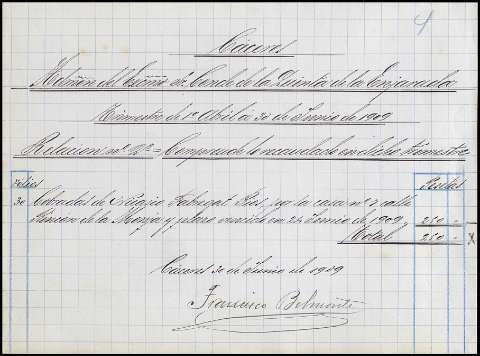 4
Cáceres
Admón del Excmo Sr. Conde de la Quinta de la Enjarada
Trimestre de 1º Abril a 30 de Junio de 1909
Relacion nº 2º = Comprende lo recaudado en dicho trimestre
Pesetas
30 Cobrados de Rios, por la casa nº 7 calle
Rincon de la Monja y plazo vencido en 24 Junio de 1909, 250 "
Total 250 " x
Cáceres 30 de Junio de 1909
Francisco Belmonte